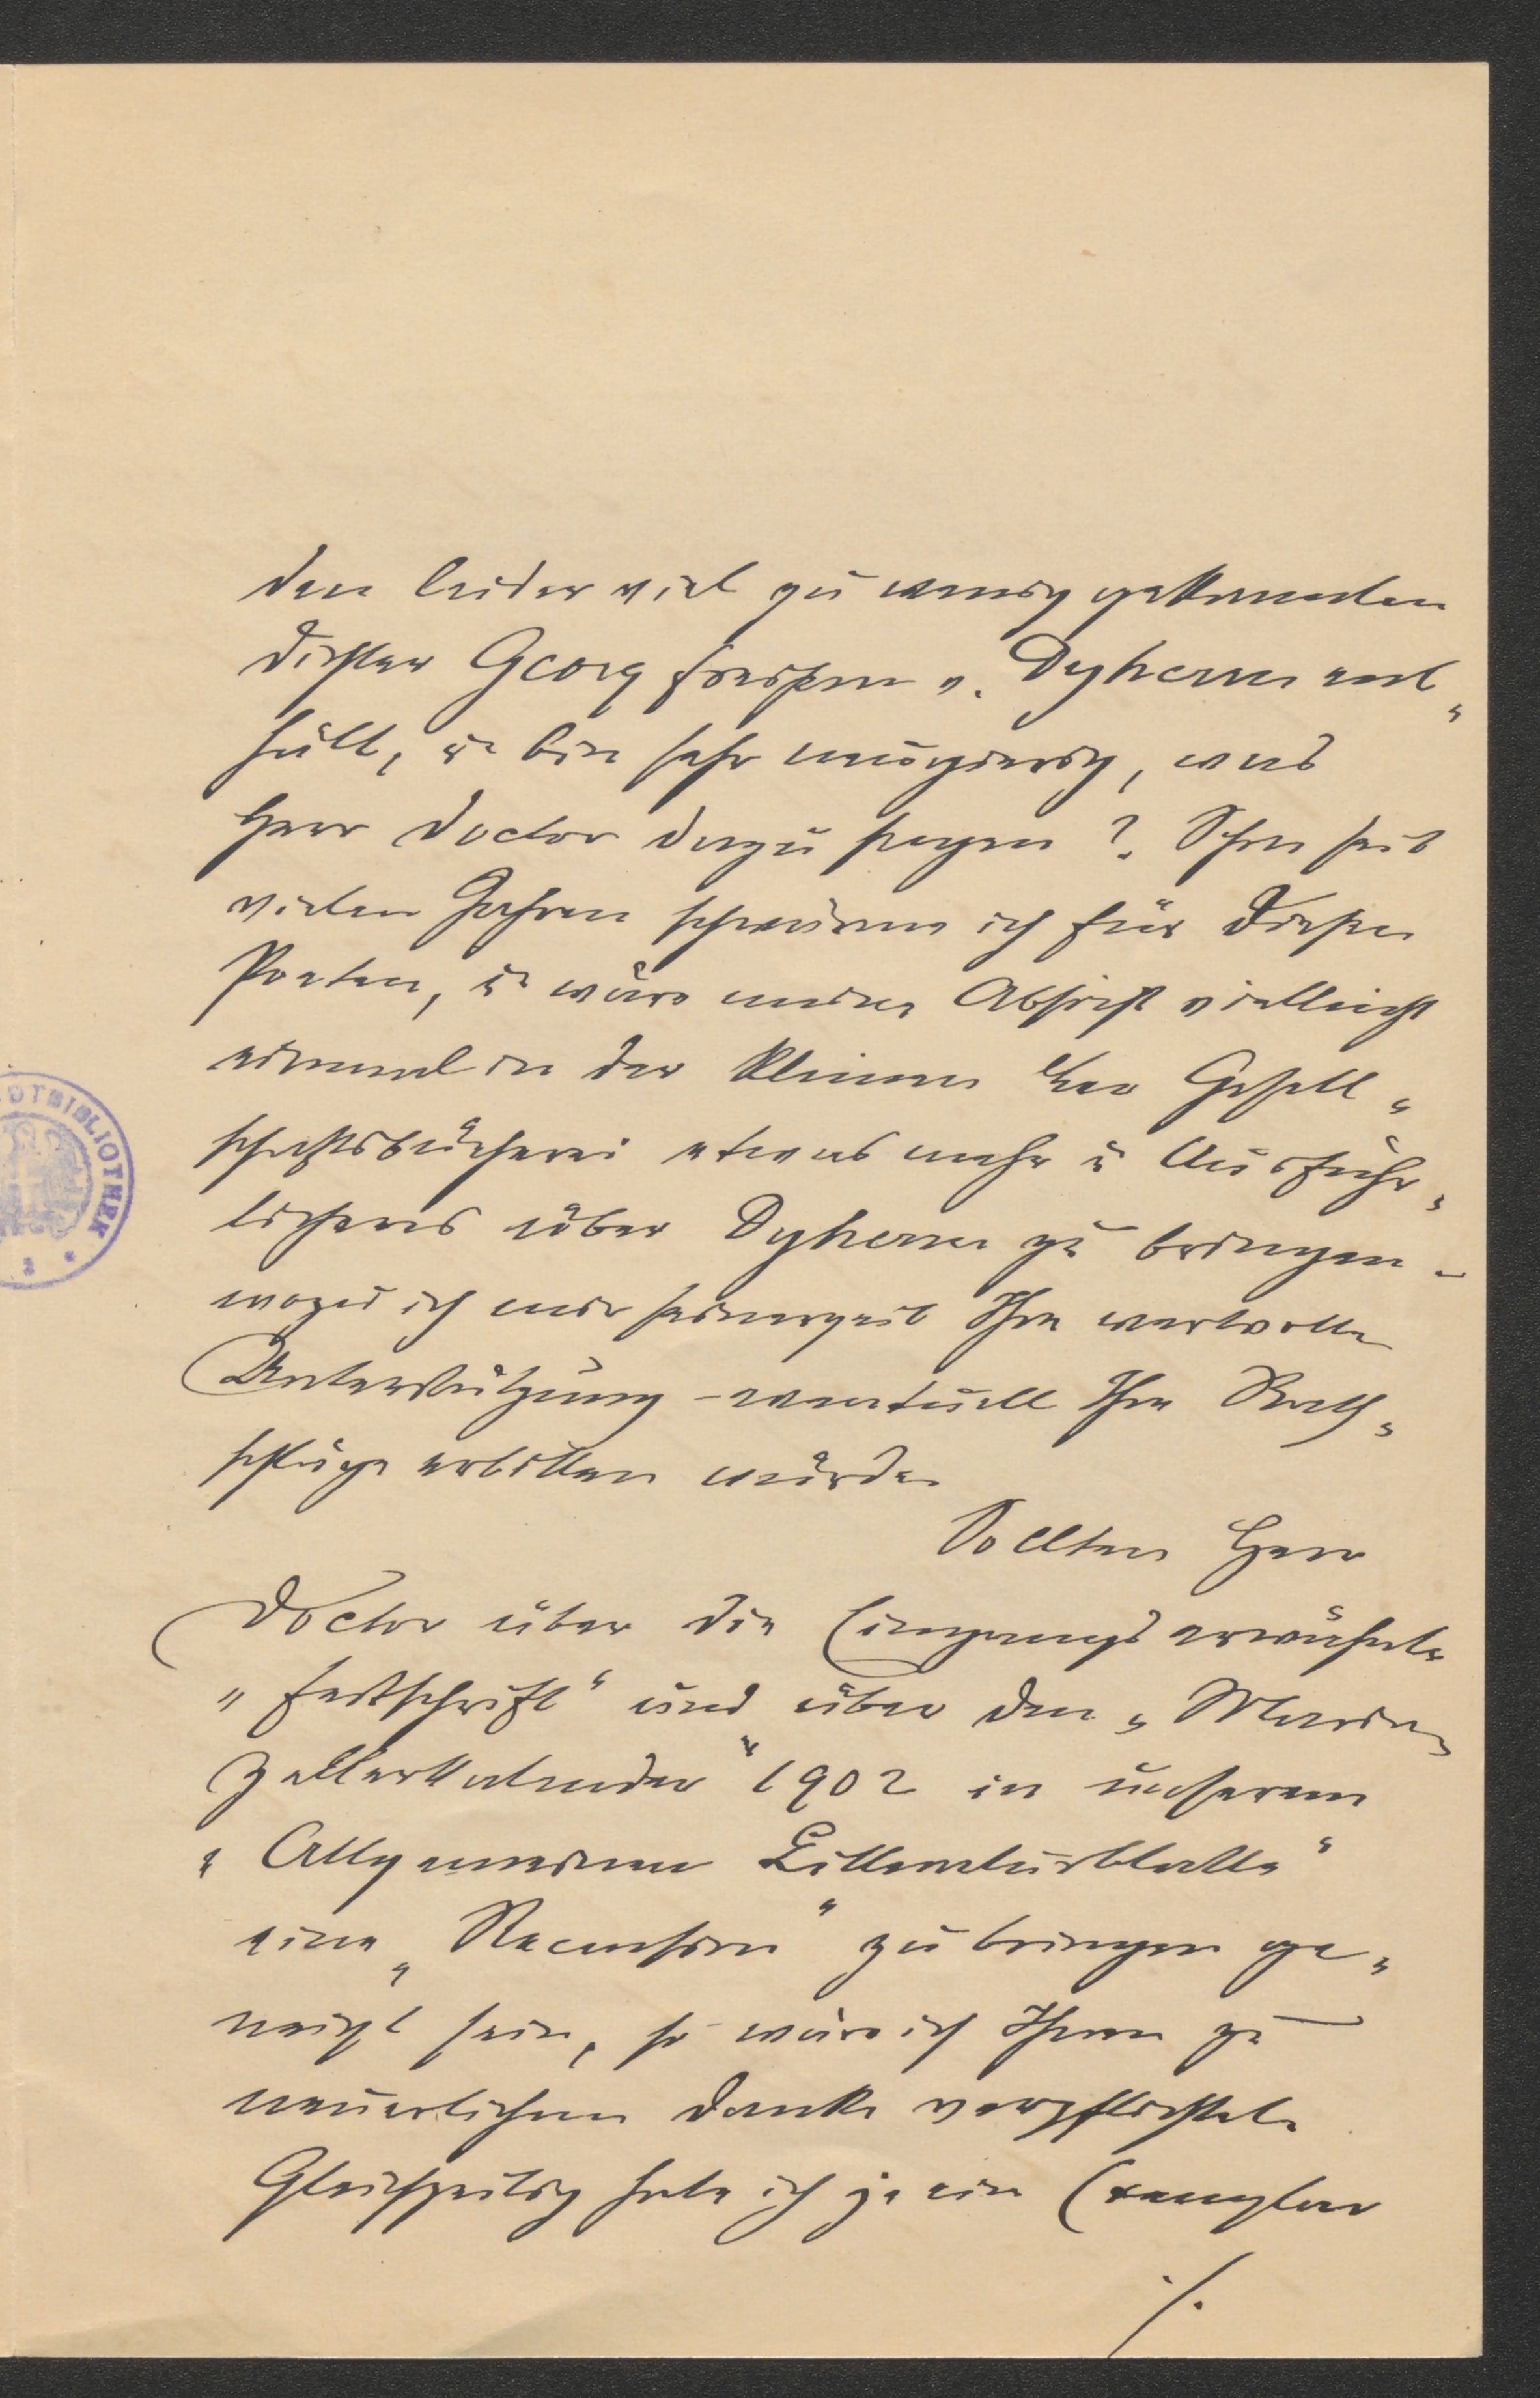 den leider viel zu wenig gekannten
Dichter Georg Freiherrn v. Dyherrn ent„
hält, u. bin sehr neugierig, was
Herr Doctor dazu sagen? Schon seit
vielen Jahren schwärme ich für diesen
Poeten, u. wäre meine Absicht vielleicht
einmal in der kleinen Leo Gesell„
schaftsbücherei etwas mehr u. Ausführ„
licheres über Dyherrn zu bringen –
wozu ich mir seinerzeit Ihre wertvolle
Unterstützung – eventuell Ihre Rath„
schläge erbitten würde.
Sollten Herr
Doctor über die Eingangs erwähnte
„Festschrift“ und über den „Maria„
zellerkalender“ 1902 in unserem
„Allgemeinen Litteraturblatte“
eine „Recension“ zu bringen ge„
neigt sein, so wäre ich Ihnen zu
neuerlichem Danke verpflichtet.
Gleichzeitig habe ich je ein Exemplar
./.
OTBIBLIOTHEK